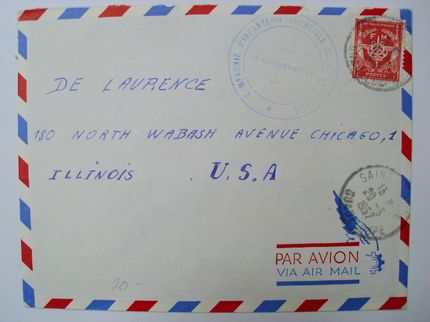 COMPAGNIE D'INFANTERIE
F M
POSTES
DE LAURENCE
180 NORTH WABASH AVENUE CHICAGO, 1
ILLINOIS U.S.A
SAINT
PAR AVION
VIA AIR MAIL